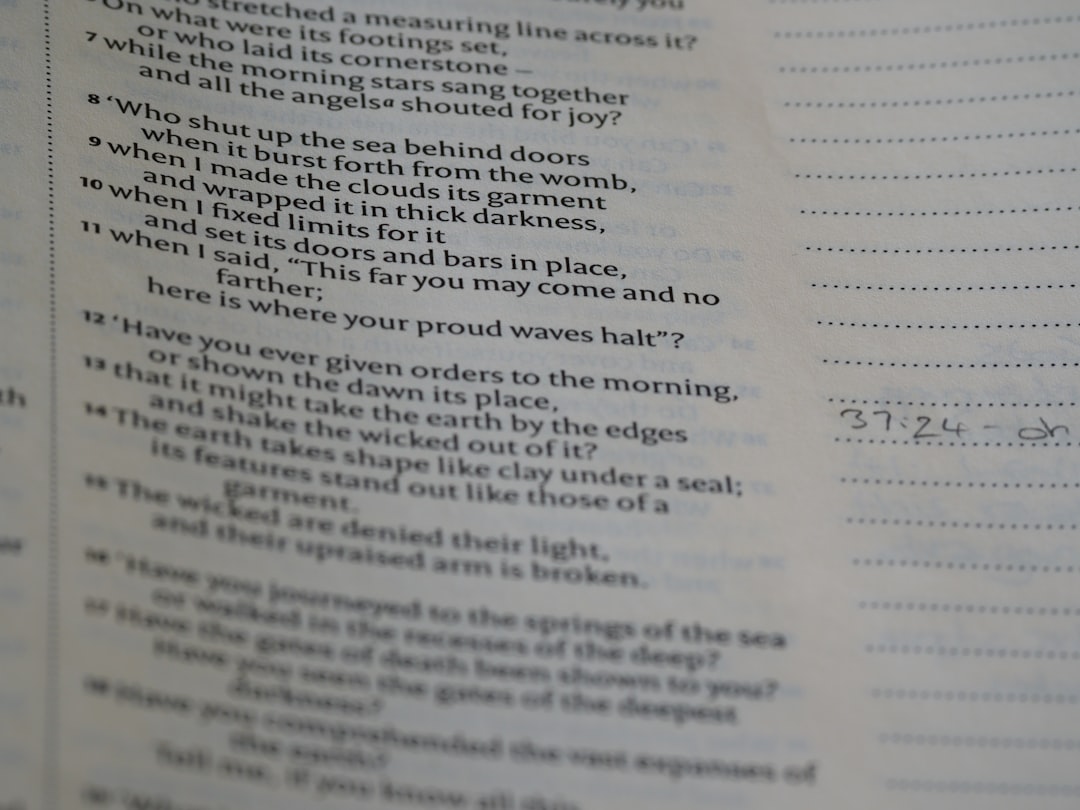 you
stretched a measuring line across it?
On what were its footings set,
or who laid its cornerstone –
7 while the morning stars sang together
and all the angelsa shouted for joy?
8 ‘Who shut up the sea behind doors
when it burst forth from the womb,
9 when I made the clouds its garment
and wrapped it in thick darkness,
10 when I fixed limits for it
and set its doors and bars in place,
11 when I said, “This far you may come and no
farther;
here is where your proud waves halt”?
12 ‘Have you ever given orders to the morning,
or shown the dawn its place,
13 that it might take the earth by the edges
and shake the wicked out of it?
14 The earth takes shape like clay under a seal;
its features stand out like those of a
garment.
15 The wicked are denied their light,
and their upraised arm is broken.
16 ‘Have you journeyed to the springs of the sea
or walked in the recesses of the deep?
17 Have the gates of death been shown to you?
Have you seen the gates of the deepest
darkness?
18 Have you comprehended the vast expanses of
the earth?
Tell me, if you know all this.
37:24 - oh